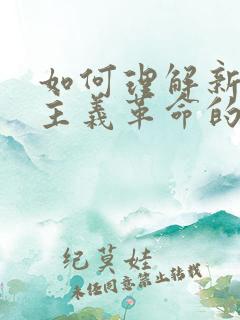 如何理解新
主义革命的
纪莫娃
未经同意禁止转载